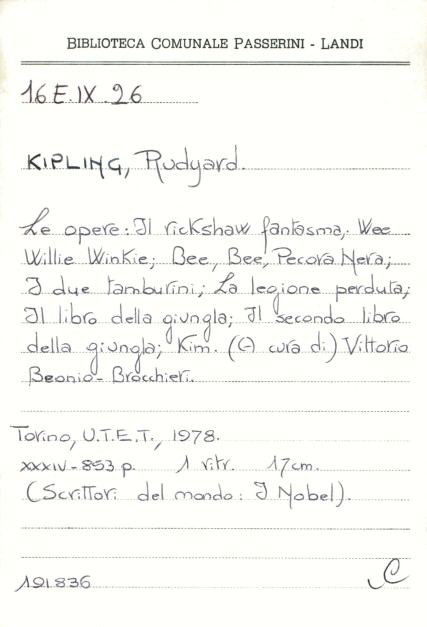 BIBLIOTECA COMUNALE PASSERINI - LANDI
16 E.IX.26
KIPLING, Rudyard.
Le opere: Il rickshaw fantasma; Wee
Willie Winkie; Bee, Bee, Pecora Nera;
I due tamburini; La legione perduta;
Il libro della giungla; Il secondo libro
della giungla; Kim. (A cura di) Vittorio
Beonio-Brocchieri.
Torino, U.T.E.T., 1978.
XXXIV-853 p. 1 ritr. 17cm.
(Scrittori del mondo: I Nobel).
191.836
C